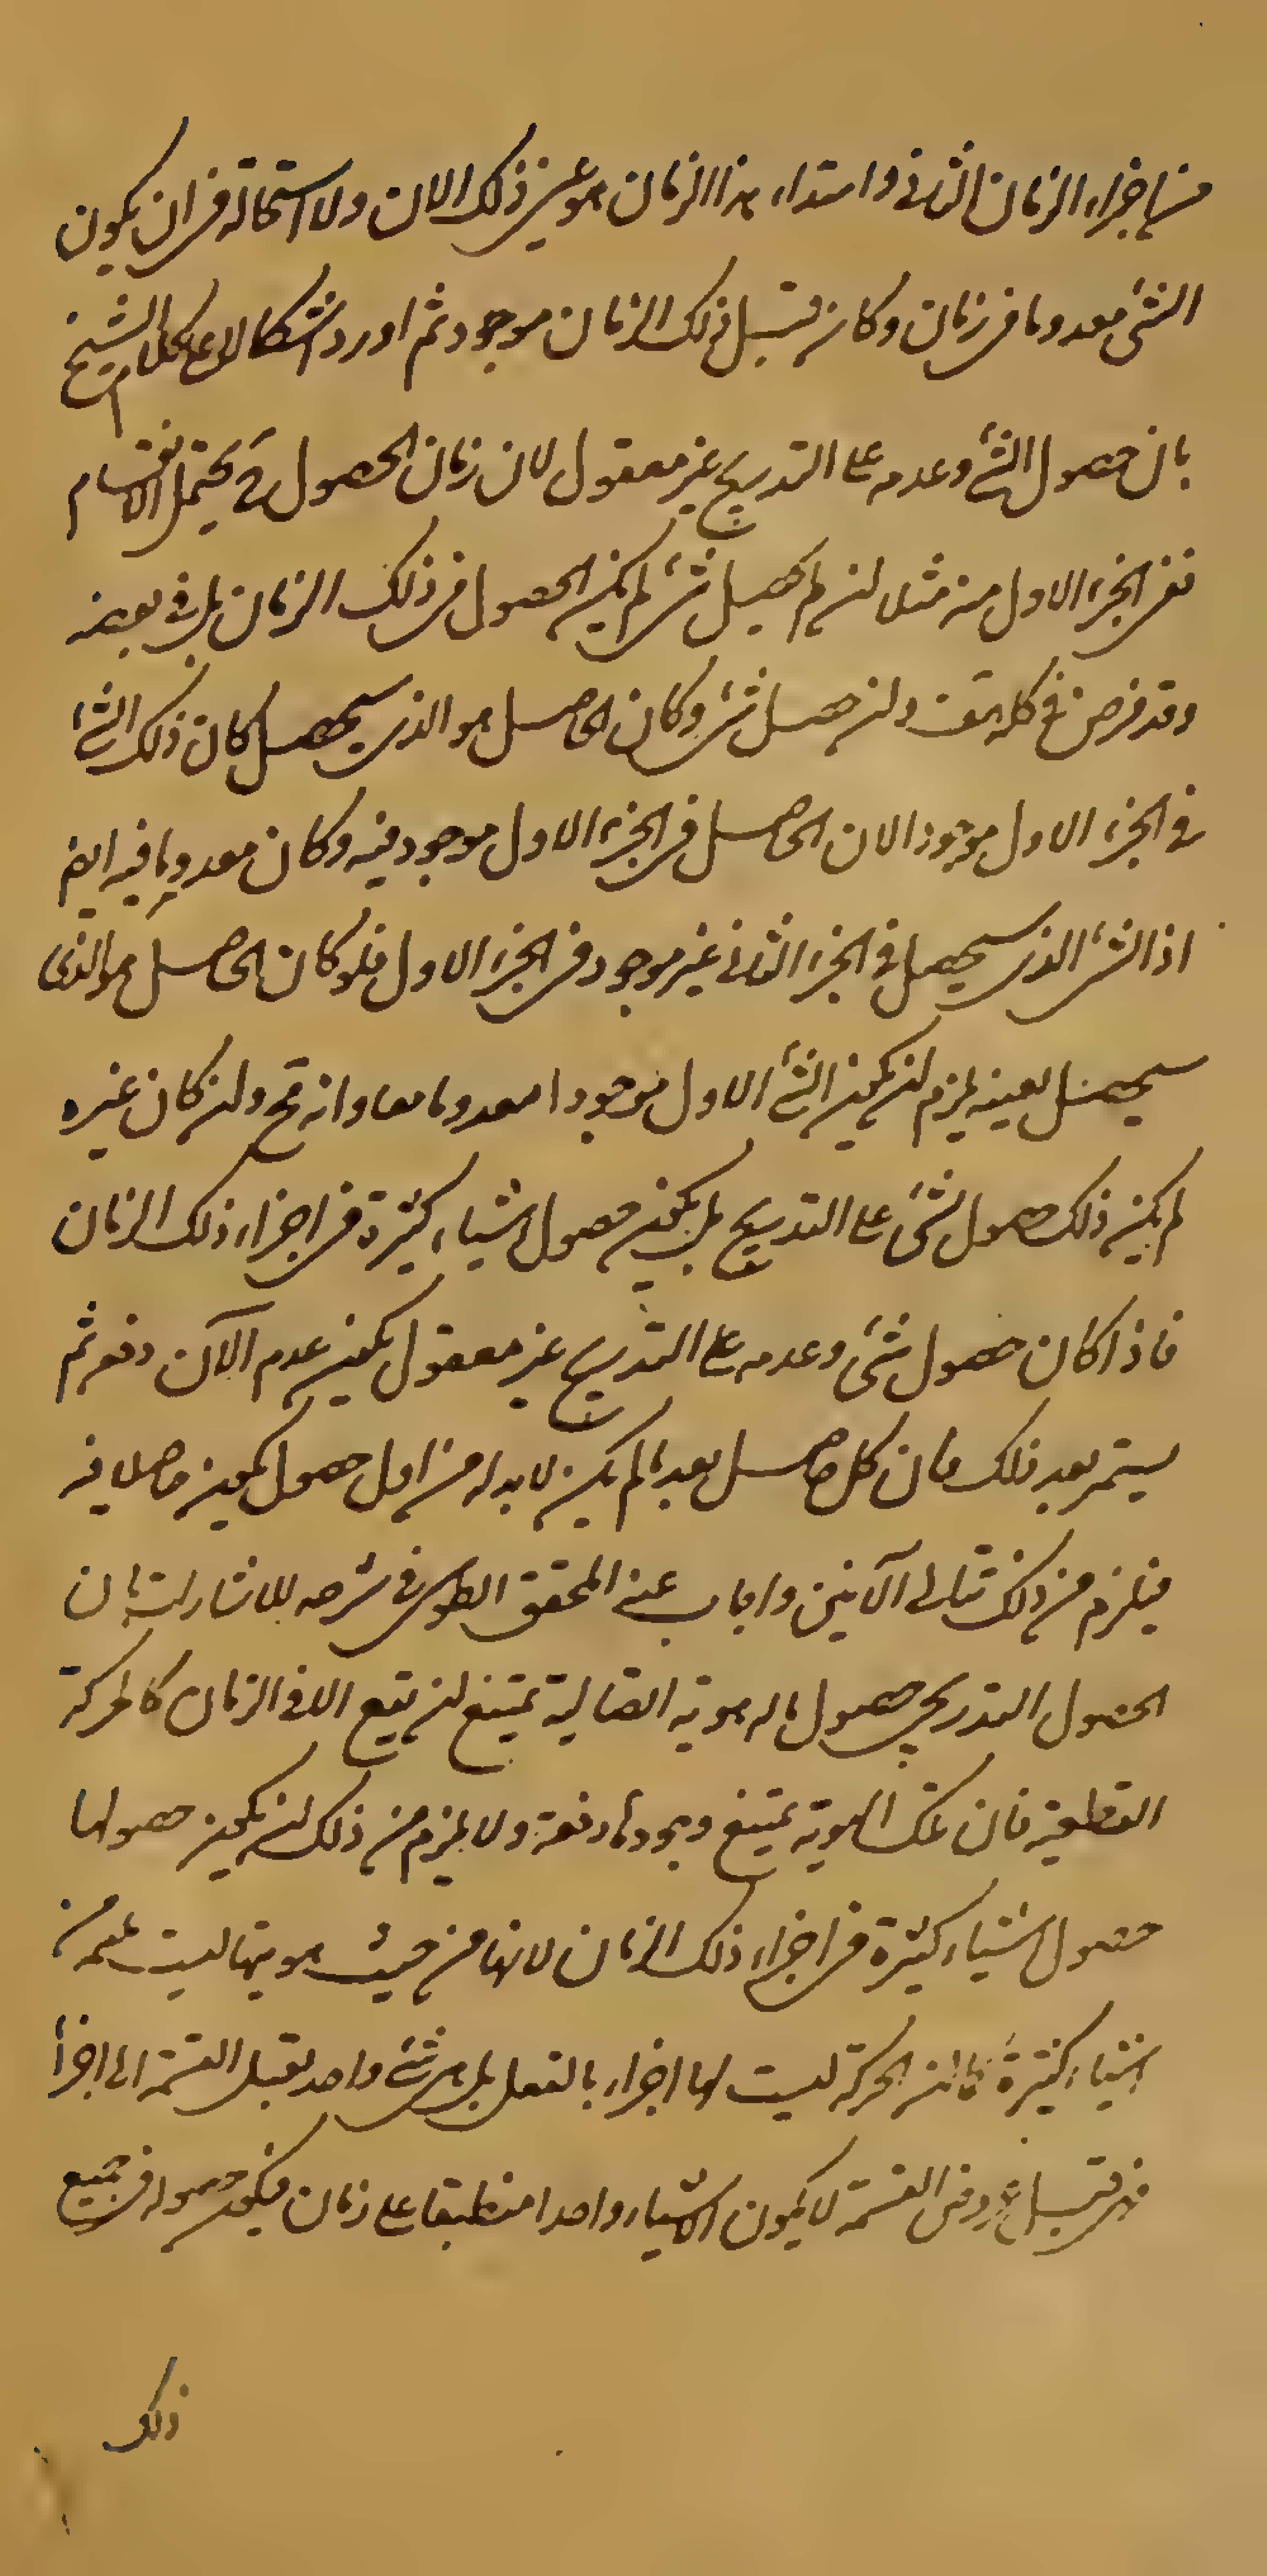 من اجزاء الزمان الثانى وابتداء هذا الزمان هو عين ذلك الان ولا استحالة فى ان يكون
الشئ معدوما فى زمان وكان قبل ذلك الزمان موجود ثم اورد اشكالا على كلام الشيخ
بان حصول الشئ وعدمه على التدريج غير معقول لان زمان الحصول يحتمل الانقسام
ففى الجزء الاول منه مثلا ان لم يحصل شئ لم يكن الحصول فى ذلك الزمان بل فى بعضه
وقد فرض فى كله هف وان حصل شئ وكان الحاصل هو الذى سيحصل كان ذلك الشئ
فى الجزء الاول موجودا لان الحاصل فى الجزء الاول موجود فيه وكان معدوما فيه ايضا
اذ الشئ الذى سيحصل فى الجزء الثانى غير موجود فى الجزء الاول فلو كان الحاصل هو الذى
سيحصل بعينه يلزم ان يكون الشئ الاول موجودا معدوما معا وانه مح وان كان غيره
لم يكن ذلك حصول الشئ على التدريج بل يكون حصول اشياء كثيرة فى اجزاء ذلك الزمان
فاذا كان حصول شئ وعدمه على التدريج غير معقول يكون عدم الآن دفعى ثم
يستمر بعد ذلك فان كل حاصل بعد ما لم يكن لا بد له من اول حصول يكون حاصلا فيه
فيلزم من ذلك تتالى الآنين واجاب عنه المحقق الطوسى فى شرحه للاشارات بان
الحصول التدريجى حصول ما له هوية اتصالية يمتنع ان يقع الا فى الزمان كالحركة
القطعية فان تلك الهوية يمتنع وجودها دفعة ولا يلزم من ذلك ان يكون حصولها
حصول اشياء كثيرة فى اجزاء ذلك الزمان لانها من حيث هويتها ليست ملتئمة من
اشياء كثيرة فان الحركة ليست لها اجزاء بالفعل بل هى شئ واحد يقبل القسمة الى اجزاء
فهى قبل عروض القسمة لا يكون الا شيئا واحدا منطبقا على زمان فيكون حصوله فى جميع
ذلك